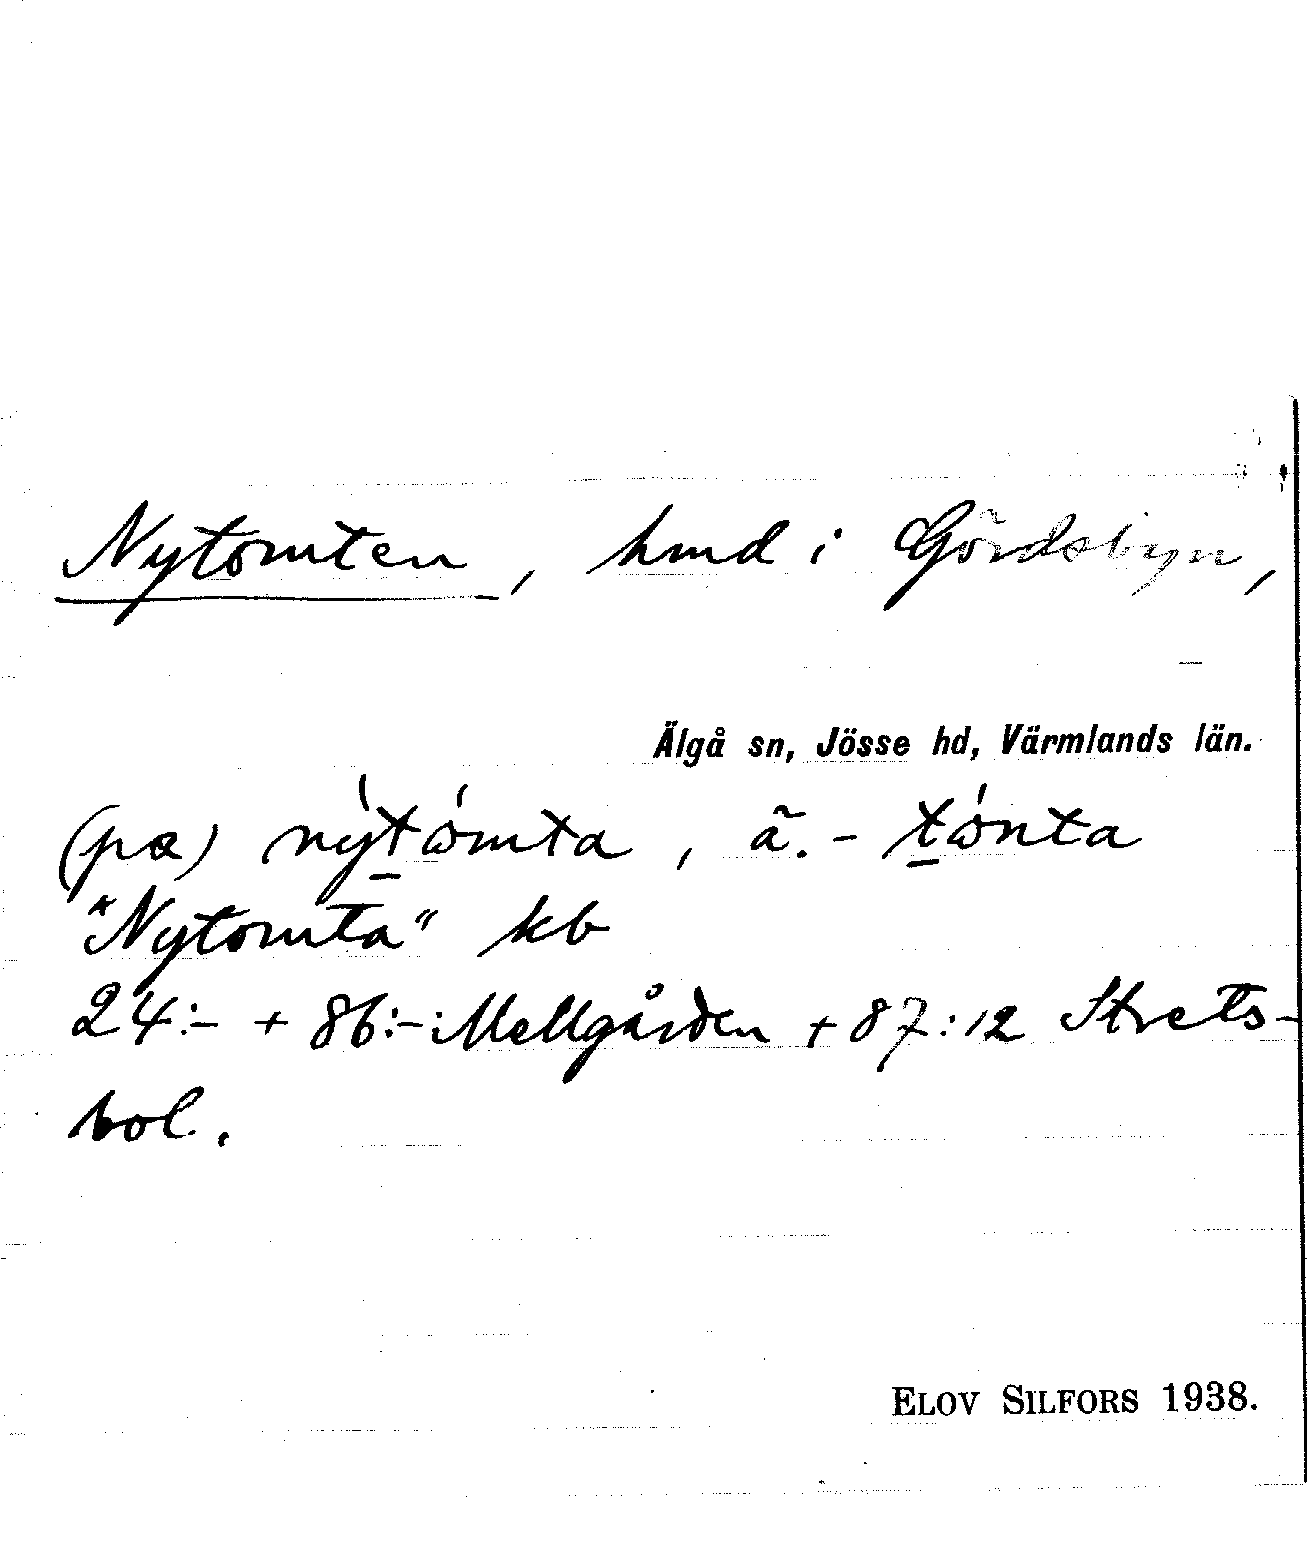 Nytomten, hmd i Gördsbyn,
Älgå sn, Jösse hd, Värmlands län.
(pa) nýt̠ómta, ã. - t̠ónta
"Nytomta" kb
24:- + 86:- Mellgården + 87:12 Strets-
bol.
ELOV SILFORS 1938.